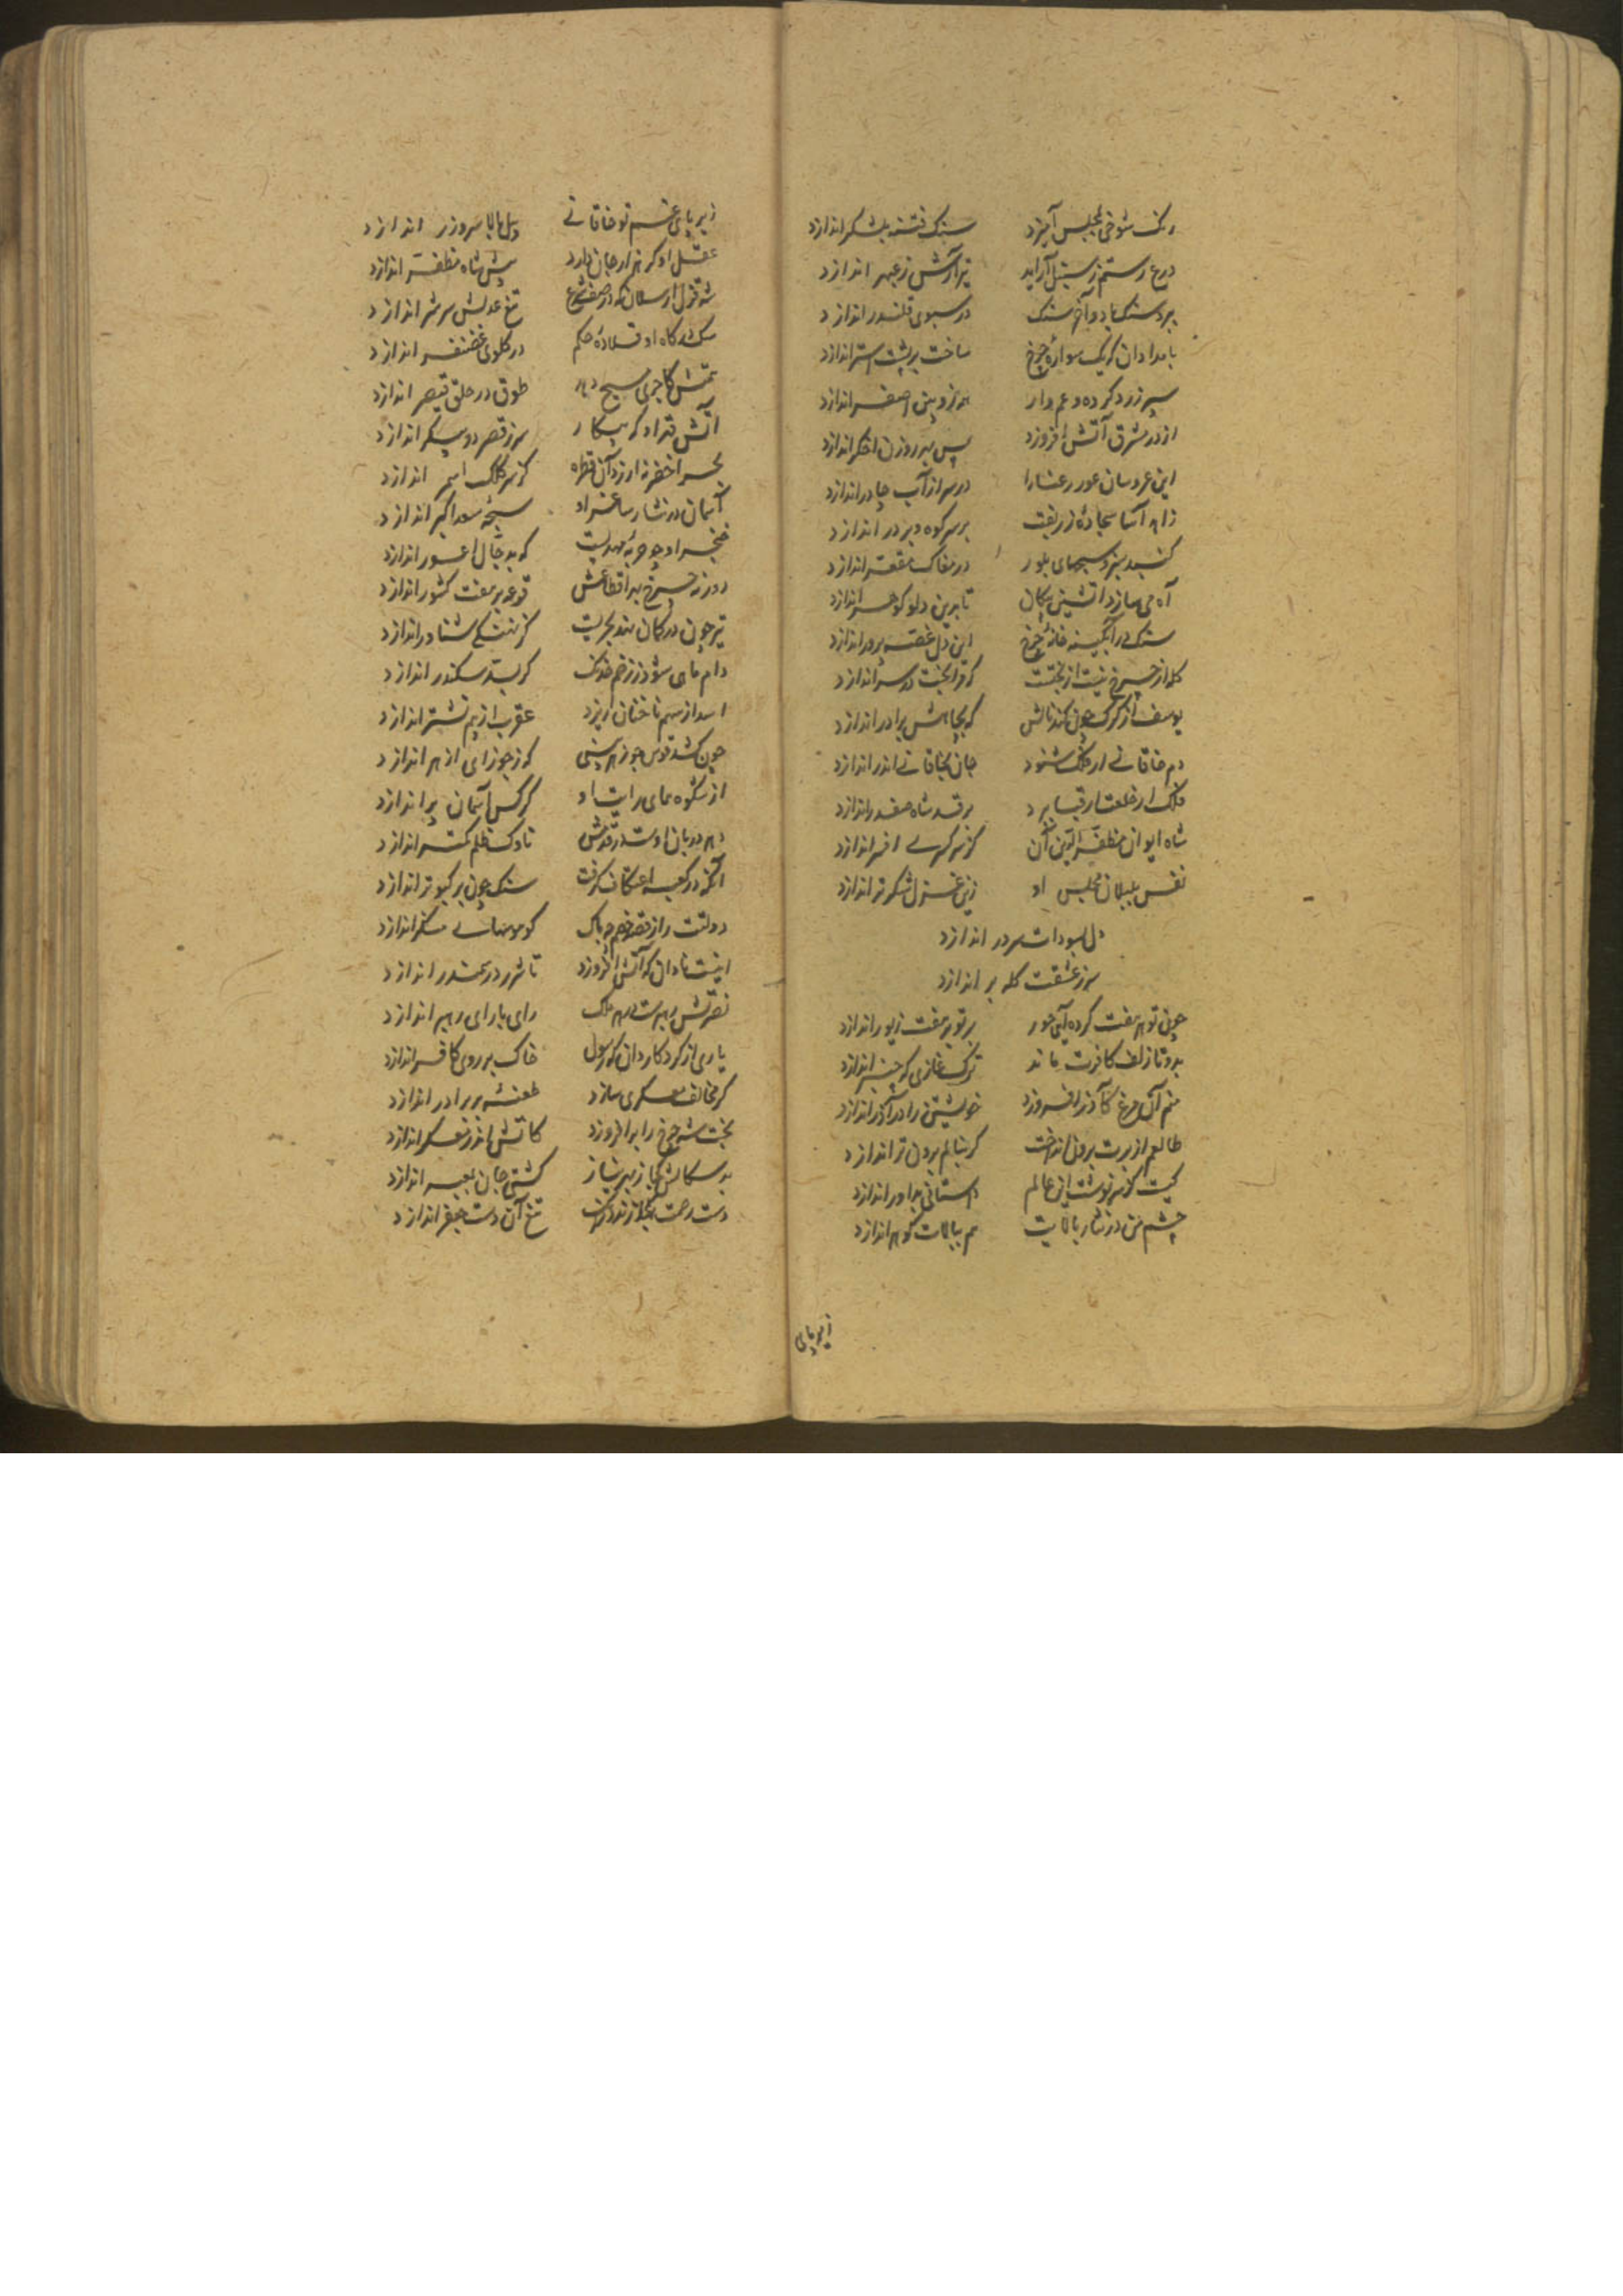 رنک شوخی بمجلس آمیزد سنک فتنه بلشکر اندازد
درع رستم ز سنبل آراید تیر آرش ز عبهر اندازد
برد سنک ما و آخر سنک در سبوی قلندر اندازد
بامدادان که یک سواره چرخ ساخت بر پشت اشقر اندازد
سپر زرد کرده و عم وار هم زوبین اصفر اندازد
از در مشرق آتش افروزد پس بهر روزن اخکر اندازد
این عروسان عور رعنا را در سر از آب چادر اندازد
زاهد آسا سجاده زربفت بر سر کوه و بر در اندازد
کنبد نیزه سبحهای بلور در مغاک مقعر اندازد
آه من سازد آتشین پیکان تا برین دلو کوهر اندازد
سنک در آبکینه خانه چرخ این دل غصه پرور اندازد
کله از چرخ نیست از بختست که مرا بخت در سر اندازد
یوسف از کرک چون کند نالش که بچاهش برادر اندازد
دم خاقانی ار فلک شنود جان بخاقانی اندر اندازد
فلک ار خلعت بقا برد بر قد شاه صفدر اندازد
شاه ایوان مظفر الدین آن کز سر کسری افسر اندازد
نفس بلبلان مجلس او زین غزل شکر تر اندازد
دل بسودات سر در اندازد
سر ز عشقت کله بر اندازد
چون تو بهر هفت کرده آیی حور بر تو بر هفت زیور اندازد
بدو تا زلف کافرت ماند ترک غازی که چنبر اندازد
منم آن مرغ کآذر افروزد خویشتن را در آذر اندازد
طالعم از برت برون انداخت کر بنالم برون تر اندازد
کیست کز سرنوشت این عالم داستانی بداور اندازد
چشم من در نثار بالایت هم ببالات کوهر اندازد
زیر پای
زیر پای غم تو خاقانی پیل بالا سر و زر اندازد
عقل او کر هزار جان دارد پیش شاه مظفر اندازد
شه قزل ارسلان که در صف شرع تیغ عدلش سر شر اندازد
سک درکاه او قلاده حکم در کلوی غضنفر اندازد
همتش کاجری مسیح دهد طوق در حلق قیصر اندازد
آتش قهر او که پیکار سر ز قصر دو پیکر اندازد
بحر اخضر نه ارزد آن قطره کز سر کلک اسمر اندازد
آسمان در نثار ساغر او سبحه سعد اکبر اندازد
خنجر او چو حربه مهدیست که بدجال اعور اندازد
روز نه چرخ بهر اقطاعش قرعه بر هفت کشور اندازد
تیر چون در کمان نهد بحریست کز نهنکی شناور اندازد
دام ماهی شود ز زخم خدنک کر بسد سکندر اندازد
اسد از سهم ناخنان ریزد عقرب از بیم نشتر اندازد
چون کشد قوس جوزهر بینی کوز جوزای ازهر اندازد
از شکوه همای رایت او کرکس آسمان پر اندازد
دهر دربان اوست در قدرش ناوک ظلم کمتر اندازد
آنکه در کعبه اعتکاف کرفت سنک چون بر کبوتر اندازد
دولتت را ز قصد خصم چه باک کو مومیایی شکر اندازد
اینت نادان که آتش افروزد تا شرر در سمندر اندازد
نصرتش رهبرست و رهبر ملک رای یا رای رهبر اندازد
یاری از کردکار دان که رسول خاک بر روی کافر اندازد
کر مخالف معسکری سازد طعنه بر برادر اندازد
بخت شه چرخ را بر افروزد کاتش اندر معسکر اندازد
بد سکالش کجا ز بحر نیاز کشتی جان بمعبر اندازد
دست رحمت کجا زند در کسی تیغ کان دست جعفر اندازد